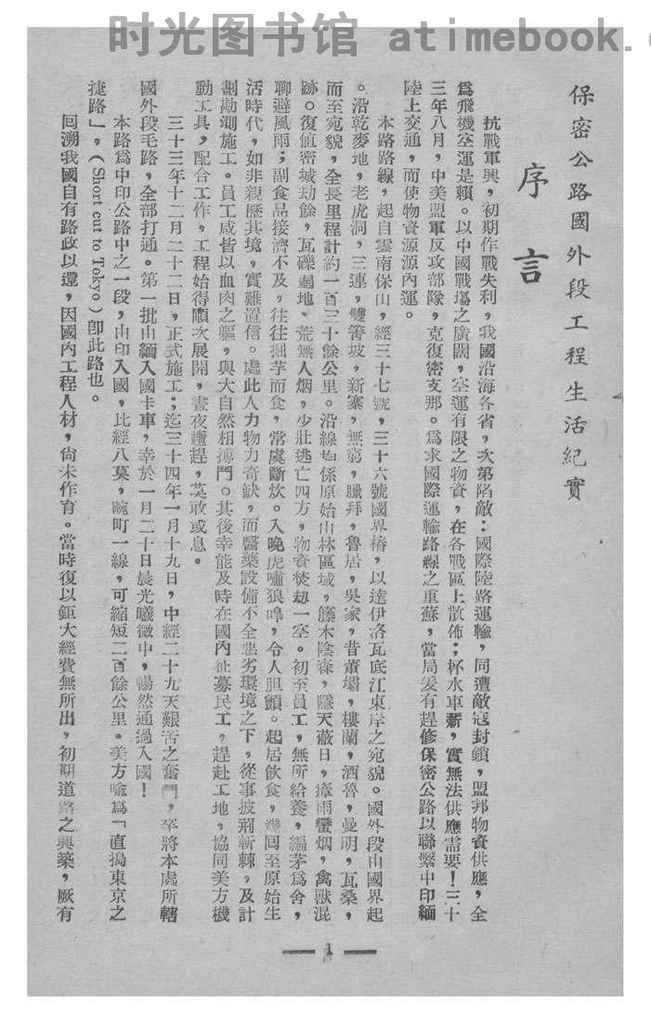 时光图书馆 atimebook.c
保密公路國外段工程生活紀實
序言
抗戰軍興，初期作戰失利，我國沿海各省，次第陷敵：國際陸路運輸，同遭敵寇封鎖，盟邦物資供應，全
爲飛機空運是賴。以中國戰塲之廣闊，空運有限之物資，在各戰區上散佈；杯水車薪，實無法供應需要！三十
三年八月，中美盟軍反攻部隊，克復密支那。爲求國際運輸路線之重蘇，當局爰有趕修保密公路以聯繫中印緬
陸上交通，而使物資源源內運。
本路路線，起自雲南保山，經三十七號，三十六號國界樁，以達伊洛瓦底江東岸之宛貌。國外段由國界起
。沿乾麥地，老虎洞，三連，雙箐坡，新寨，無蒭，臘拜，魯居，吳家，昔董壩，樓蘭，酒魯，曼明，瓦桑，
而至宛貌，全長里程計約一百三十餘公里。沿線均係原始山林區域，籐木陰森，隱天蔽日，瘴雨蠻烟，禽獸混
跡。復值密城劫餘，瓦礫遍地，荒無人烟，少壯逃亡四方，物資焚刼一空。初至員工，無所給養，編茅爲舍，
聊避風雨；副食品接濟不及，往往掘芋而食，常處斷炊。入晚虎嘯狼嘷，令人胆顫。起居飲食，幾同至原始生
活時代，如非親歷其境，實難置信。處此人力物力奇缺，而醫藥設備不全惡劣環境之下，從事披荊斬棘，及計
劃勘測施工。員工咸皆以血肉之軀，與大自然相搏鬥。其後幸能及時在國內征募民工，趕赴工地，協同美方機
動工具，配合工作，工程始得順次展開，晝夜趲趕，莫敢或息。
三十三年十二月二十二日，正式施工；迄三十四年一月十九日，中經二十九天艱苦之奮鬥，卒將本處所轄
國外段毛路，全部打通。第一批由緬入國卡車，幸於一月二十日晨光曦微中，暢然通過入國！
本路爲中印公路中之一段，由印入國，比經八莫，畹町一線，可縮短二百餘公里。美方喩爲「直搗東京之
捷路」，（Short cut to Tokyo）卽此路也。
囘溯我國自有路政以還，因國內工程人材，尙未作育。當時復以鉅大經費無所出，初期道路之興築，厥有
1